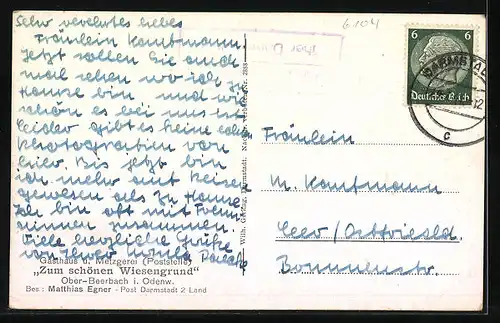 Sehr verehrtes liebes
Fräulein Kaufmann
Jetzt sollen Sie auch
mal sehen wo ich zu
Hause bin und wie
schön es bei uns ist
Leider gibt es keine
Photografien von
hier. Bis jetzt bin
ich mehr auf Reisen
gewesen als zu Hause
Ich bin oft mit Freun-
dinnen zusammen.
Viele herzliche Grüße
von Ihrer
Gasthaus u. Metzgerei (Poststelle)
„Zum schönen Wiesengrund"
Ober-Beerbach i. Odenw.
Bes: Matthias Egner - Post Darmstadt 2 Land
Wilh. Gerling, Darmstadt. Nachdr. verboten 2888
6104
6 6
Deutsches Reich
DARMSTADT
c
Fräulein
M. Kaufmann
Leer/Ostfriesld.